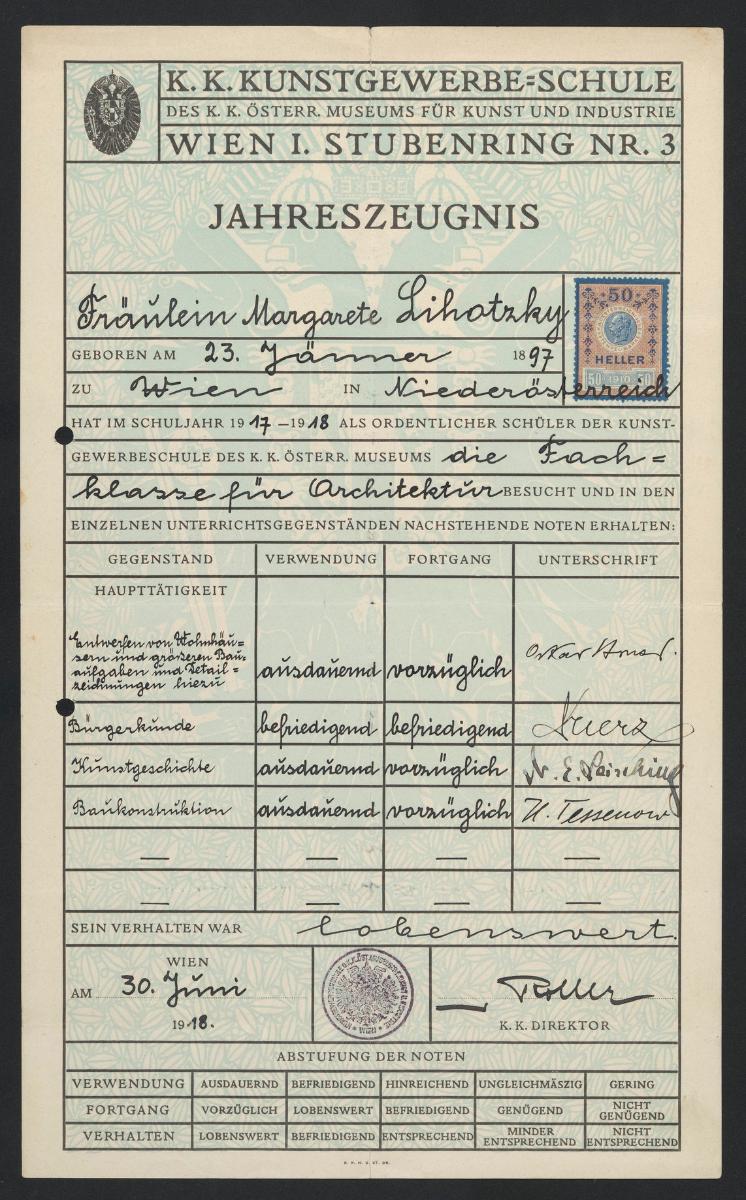 K. K. KUNSTGEWERBE=SCHULE
DES K. K. ÖSTERR. MUSEUMS FÜR KUNST UND INDUSTRIE
WIEN I. STUBENRING NR. 3
JAHRESZEUGNIS
Fräulein Margarete Lihotzky
50
HELLER
50 1910 50
GEBOREN AM 23. Jänner 1897
ZU Wien IN Niederösterreich
HAT IM SCHULJAHR 1917–1918 ALS ORDENTLICHER SCHÜLER DER KUNST-
GEWERBESCHULE DES K. K. ÖSTERR. MUSEUMS die Fach=
klasse für Architektur BESUCHT UND IN DEN
EINZELNEN UNTERRICHTSGEGENSTÄNDEN NACHSTEHENDE NOTEN ERHALTEN:
GEGENSTAND VERWENDUNG FORTGANG UNTERSCHRIFT
HAUPTTÄTIGKEIT
Entwerfen von Wohnhäu=
sern und größeren Bau-
aufgaben und Detail=
zeichnungen hiezu ausdauernd vorzüglich Oskar Strnad.
Bürgerkunde befriedigend befriedigend
Kunstgeschichte ausdauernd vorzüglich Dr. E. Leisching
Baukonstruktion ausdauernd vorzüglich H. Tessenow
— — — —
— — — —
SEIN VERHALTEN WAR lobenswert.
WIEN
AM 30. Juni
1918.
WIEN
Roller
K. K. DIREKTOR
ABSTUFUNG DER NOTEN
VERWENDUNG AUSDAUERND BEFRIEDIGEND HINREICHEND UNGLEICHMÄSZIG GERING
FORTGANG VORZÜGLICH LOBENSWERT BEFRIEDIGEND GENÜGEND NICHT GENÜGEND
VERHALTEN LOBENSWERT BEFRIEDIGEND ENTSPRECHEND MINDER ENTSPRECHEND NICHT ENTSPRECHEND